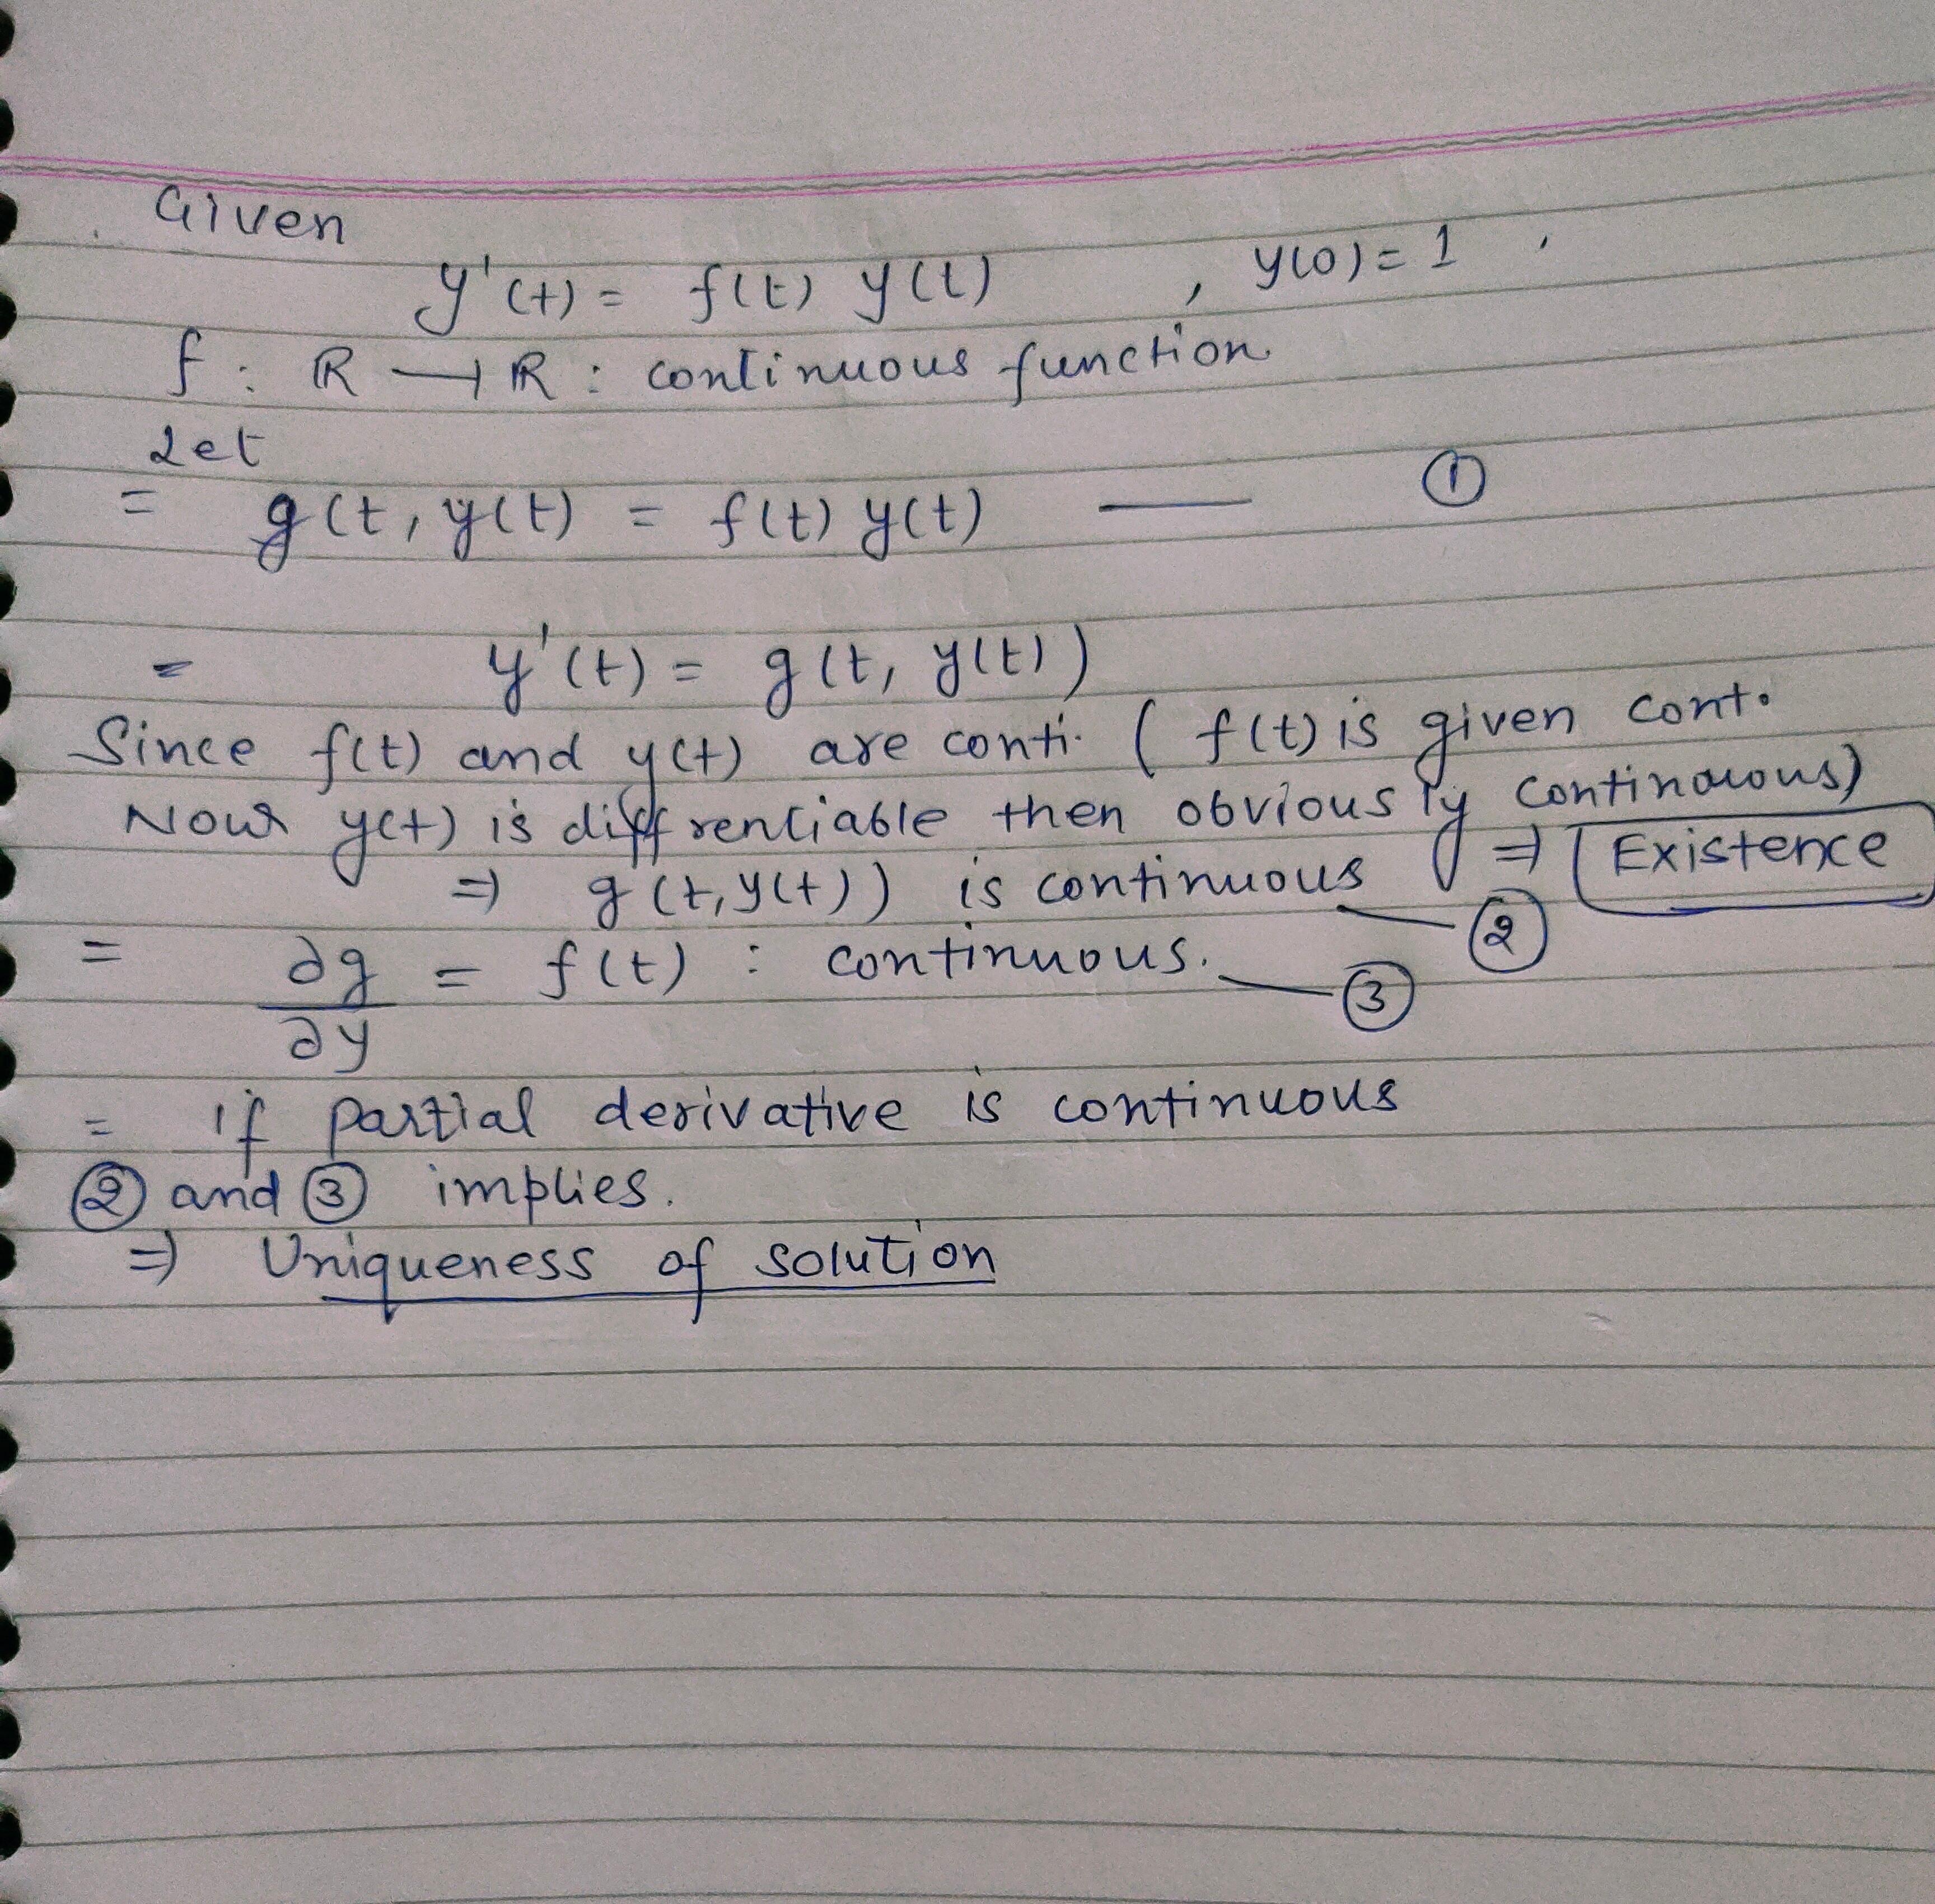 Given
y'(t) = f(t) y(t) , y(0) = 1 .
f : ℝ → ℝ : continuous function
Let
= g(t, y(t) = f(t) y(t) — ①
= y'(t) = g(t, y(t))
Since f(t) and y(t) are conti. ( f(t) is given cont.
Now y(t) is diffrentiable then obviously continuous)
⇒ g(t, y(t)) is continuous ⇒ Existence
— ②
= ∂g/∂y = f(t) : continuous. — ③
= if partial derivative is continuous
② and ③ implies.
⇒ Uniqueness of solution